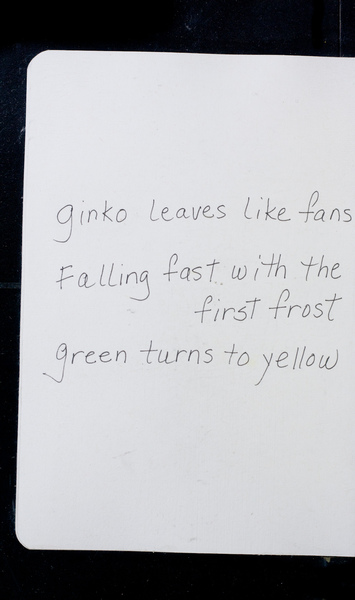 ginko leaves like fans
Falling fast with the
first frost
green turns to yellow